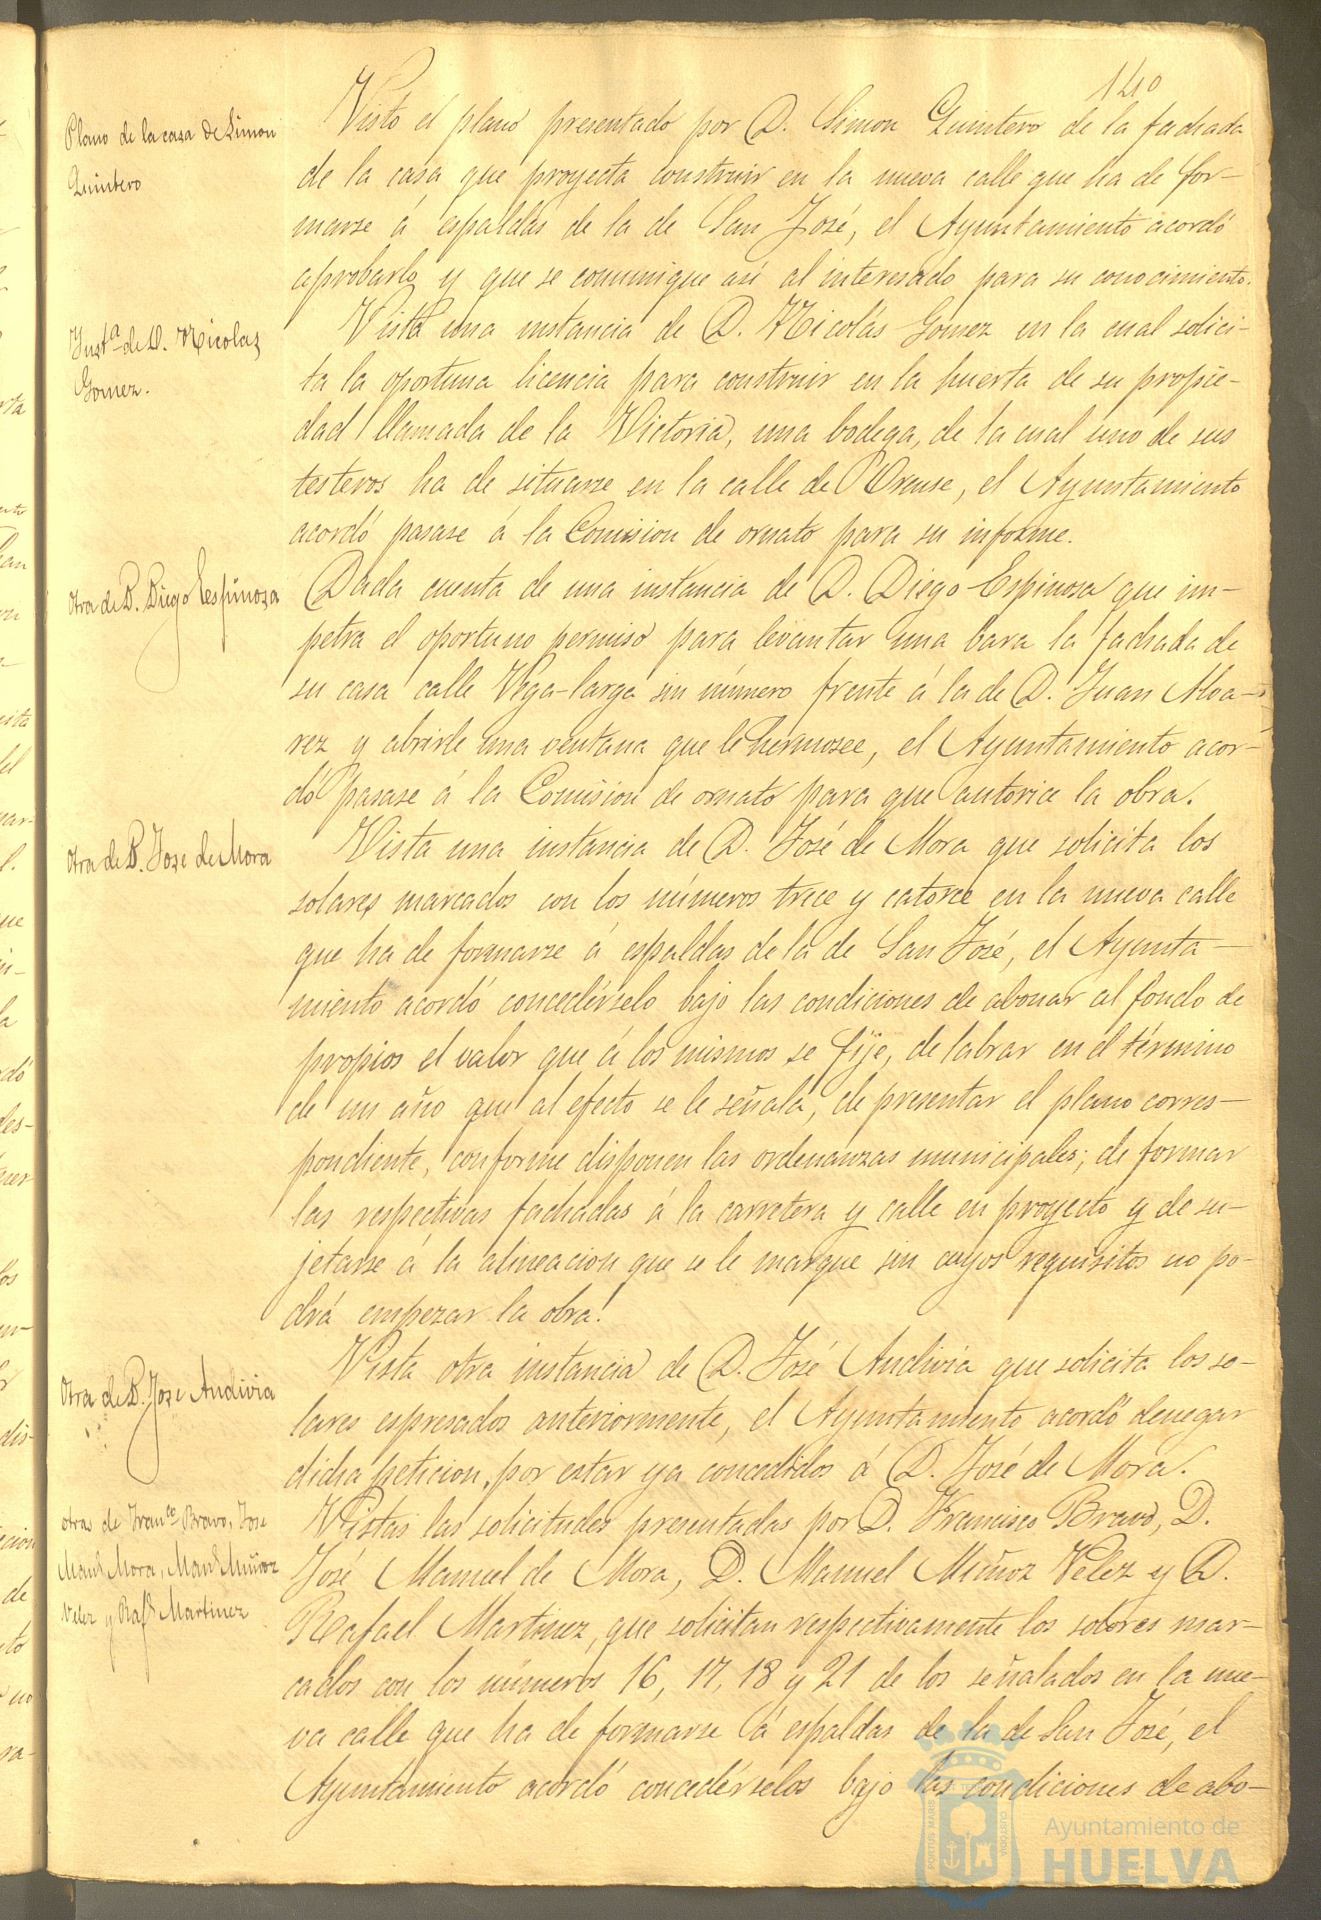 140
Plano de la casa de Simon
Quintero
Visto el plano presentado por D. Simon Quintero de la fachada
de la casa que proyecta construir en la nueva calle que ha de for-
marse á espaldas de la de San José, el Ayuntamiento acordó
aprobarlo y que se comunique asi al interesado para su conocimiento.
Inst.ª de D. Nicolas
Gomez.
Vista una instancia de D. Nicolás Gomez en la cual solici-
ta la oportuna licencia para construir en la huerta de su propie-
dad llamada de la Victoria, una bodega, de la cual uno de sus
testeros ha de situarse en la calle de Orense, el Ayuntamiento
acordó pasase á la Comision de ornato para su informe.
Otra de D. Diego Espinosa
Dada cuenta de una instancia de D. Diego Espinosa que im-
petra el oportuno permiso para levantar una bara la fachada de
su casa calle Vega-larga sin número frente á la de D. Juan Alva-
rez y abrirle una ventana que le hermosee, el Ayuntamiento acor-
dó pasase á la Comision de ornato para que autorice la obra.
Otra de D. Jose de Mora
Vista una instancia de D. José de Mora que solicita los
solares marcados con los números trece y catorce en la nueva calle
que ha de formarse á espaldas de la de San José, el Ayunta-
miento acordó concedérselo bajo las condiciones de abonar al fondo de
propios el valor que á los mismos se fije, de labrar en el término
de un año que al efecto se le señala, de presentar el plano corres-
pondiente, conforme disponen las ordenanzas municipales; de formar
las respectivas fachadas á la carretera y calle en proyecto y de su-
jetarse á la alineacion que se le marque sin cuyos requisitos no po-
drá empezar la obra.
Otra de D. Jose Andivia
Vista otra instancia de D. José Andivia que solicita los so-
lares espresados anteriormente, el Ayuntamiento acordó denegar
dicha peticion, por estar ya concedidos á D. José de Mora.
Otras de Fran.co Bravo, Jose
Man.l Mora, Man.l Muñoz
Velez y Raf.l Martinez
Vistas las solicitudes presentadas por D. Francisco Bravo, D.
José Manuel de Mora, D. Manuel Muñoz Velez y D.
Rafael Martinez, que solicitan respectivamente los solores mar-
cados con los números 16, 17, 18 y 21 de los señalados en la nue-
va calle que ha de formarse á espaldas de la de San José, el
Ayuntamiento acordó concedérselos bajo las condiciones de abo-
Ayuntamiento de
HUELVA